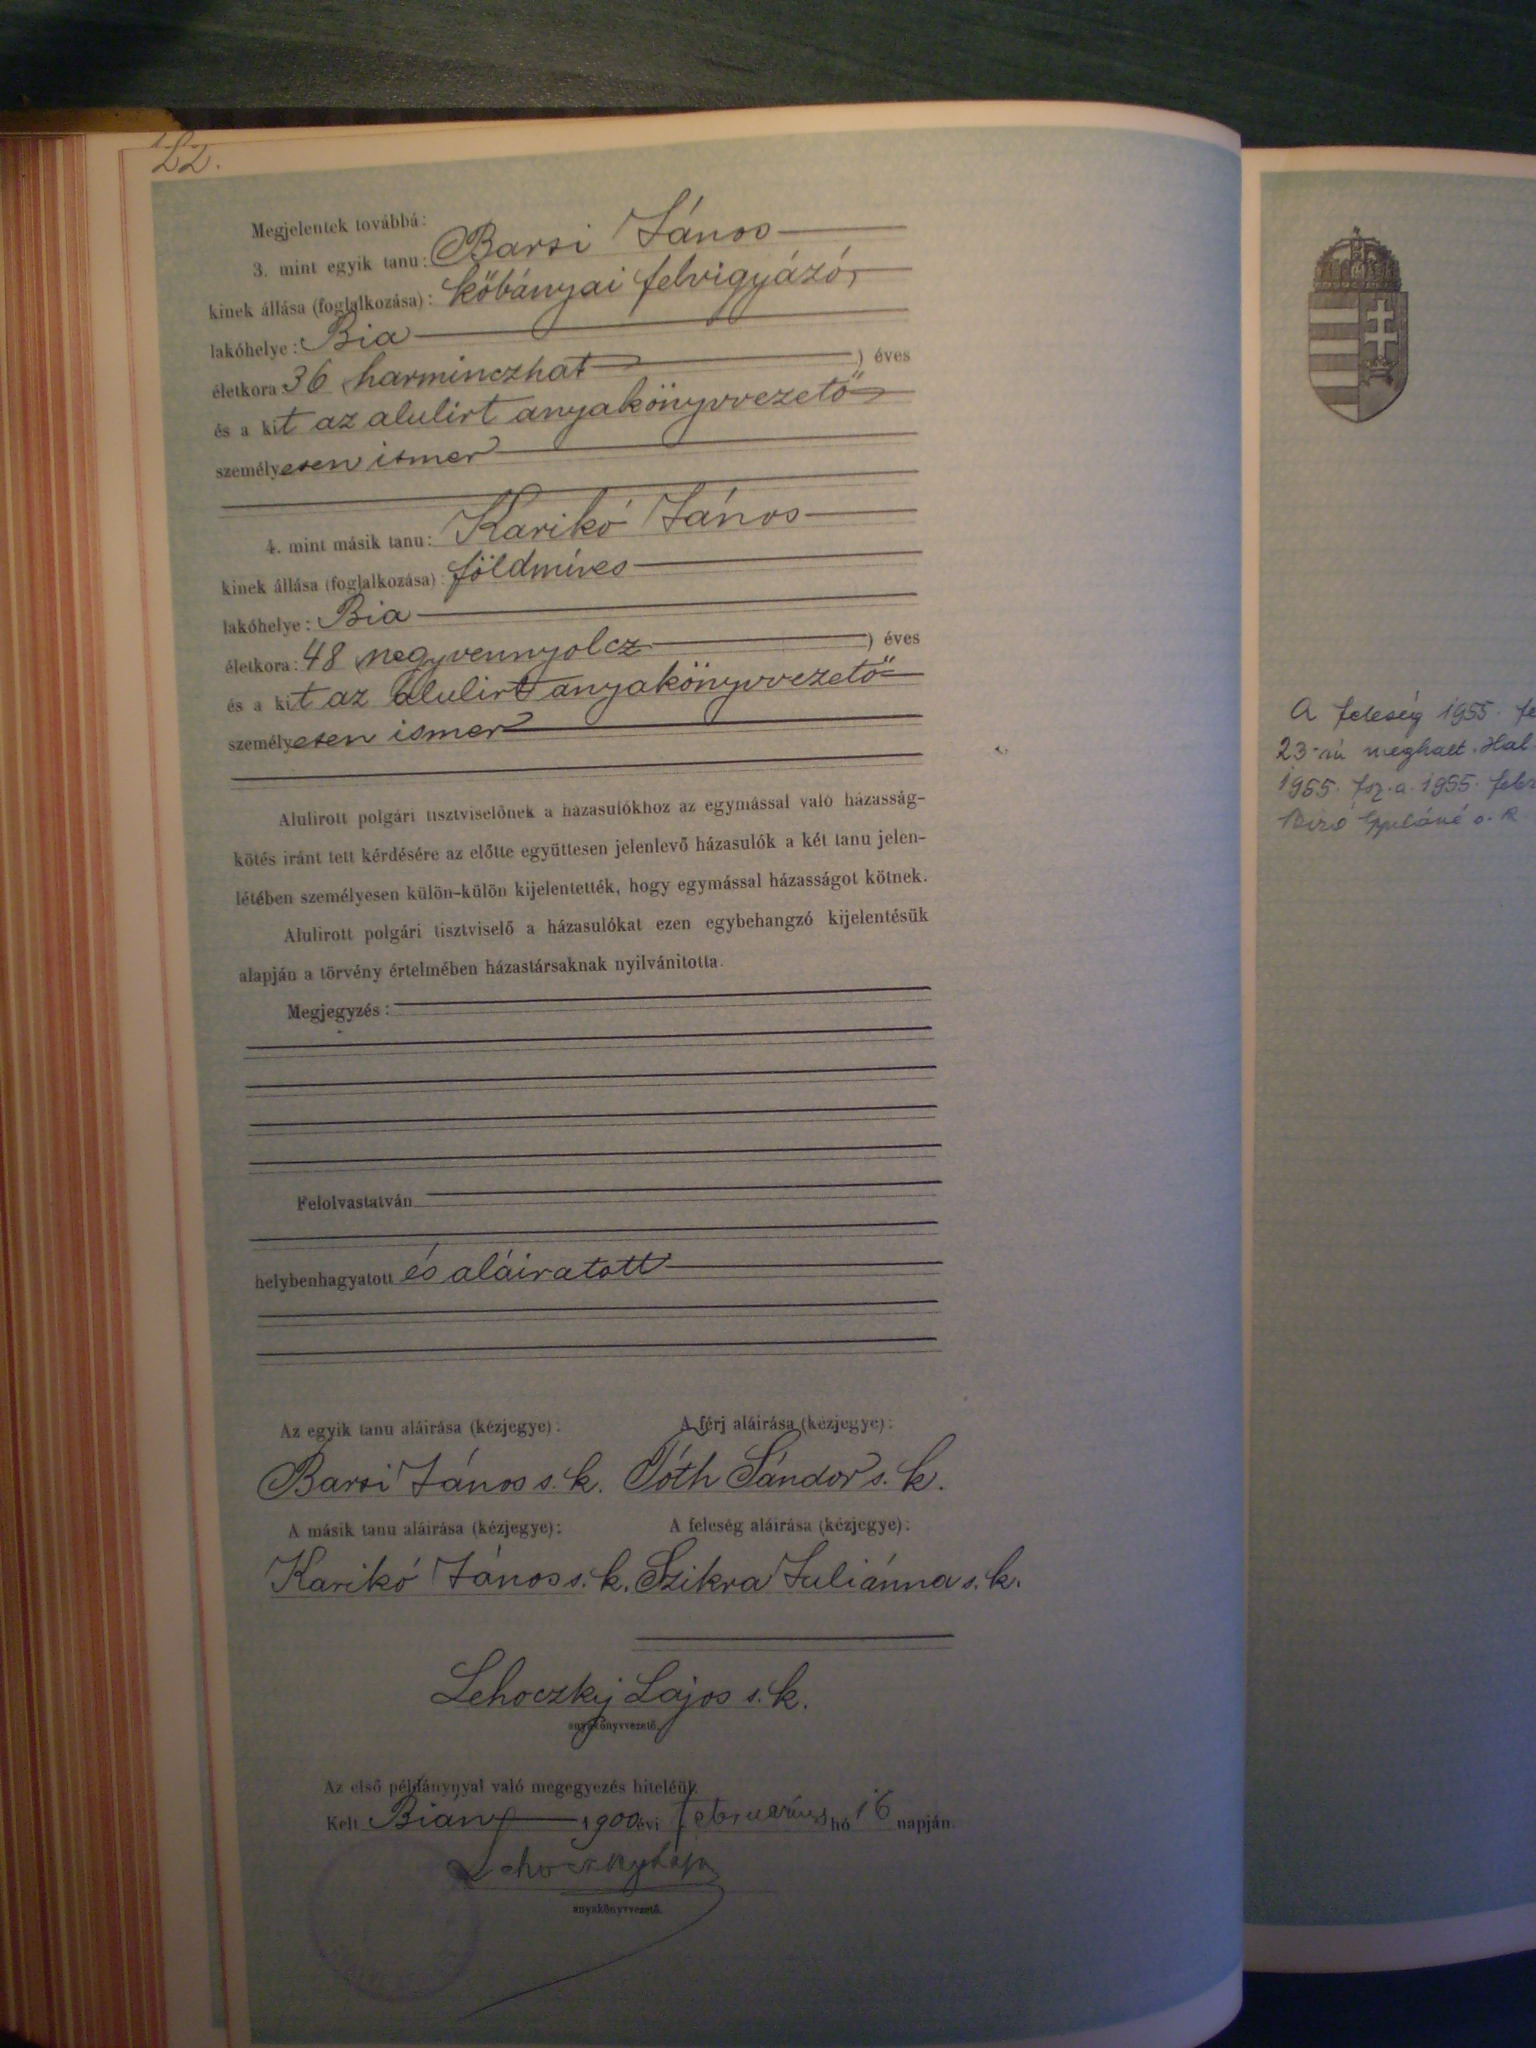 22.
Megjelentek továbbá:
3. mint egyik tanu: Barsi János
kinek állása (foglalkozása): kőbányai felvigyázó,
lakóhelye: Bia
életkora: 36 (harminczhat ) éves
és a kit az alulirt anyakönyvvezető
személyesen ismer
4. mint másik tanu: Karikó János
kinek állása (foglalkozása): földmíves
lakóhelye: Bia
életkora: 48 (negyvennyolcz ) éves
és a kit az alulirt anyakönyvvezető
személyesen ismer
Alulirott polgári tisztviselőnek a házasulókhoz az egymással való házasság-
kötés iránt tett kérdésére az előtte együttesen jelenlevő házasulók a két tanu jelen-
létében személyesen külön-külön kijelentették, hogy egymással házasságot kötnek.
Alulirott polgári tisztviselő a házasulókat ezen egybehangzó kijelentésük
alapján a törvény értelmében házastársaknak nyilvánitotta.
Megjegyzés:
Felolvastatván
helybenhagyatott és aláiratott
Az egyik tanu aláirása (kézjegye): A férj aláirása (kézjegye):
Barsi János s. k. Tóth Sándor s. k.
A másik tanu aláirása (kézjegye): A feleség aláirása (kézjegye):
Karikó János s. k. Szikra Juliánna s. k.
Lehoczky Lajos s. k.
anyakönyvvezető.
Az első példánynyal való megegyezés hiteléül.
Kelt Bian 1900 évi február hó 16 napján.
Lehoczky Lajos
anyakönyvvezető.
A feleség 1955. fe
23-án meghalt. Hal
1955. fsz. a. 1955. febr
Biró Gyuláné s. k.